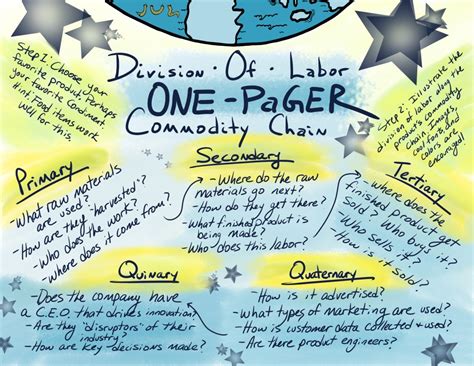 Division · Of · Labor
ONE-PaGER
Commodity Chain
Step 1: Choose your
favorite product. Perhaps
your favorite condiment.
Hint: Food items work
well for this.
Step 2: Illustrate the
division of labor along the
commodity chain. Images,
cool fonts, and
colors are
encouraged.
Primary
-What raw materials
are used?
-How are they 'harvested'?
-Who does the work?
-Where does it come from?
Secondary
-Where do the raw
materials go next?
-How do they get there?
-What finished product is
being made?
-Who does this labor?
Tertiary
-Where does the
finished product get
sold? Who buys it?
-Who sells it?
-How is it sold?
Quinary
-Does the company have
a C.E.O. that drives innovation?
-Are they 'disruptors' of their
industry?
-How are key decisions made?
Quaternary
-How is it advertised?
-What types of marketing are used?
-How is customer data collected & used?
-Are there product engineers?